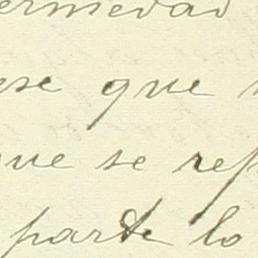 ermedad
ese que
que se rep
parte lo